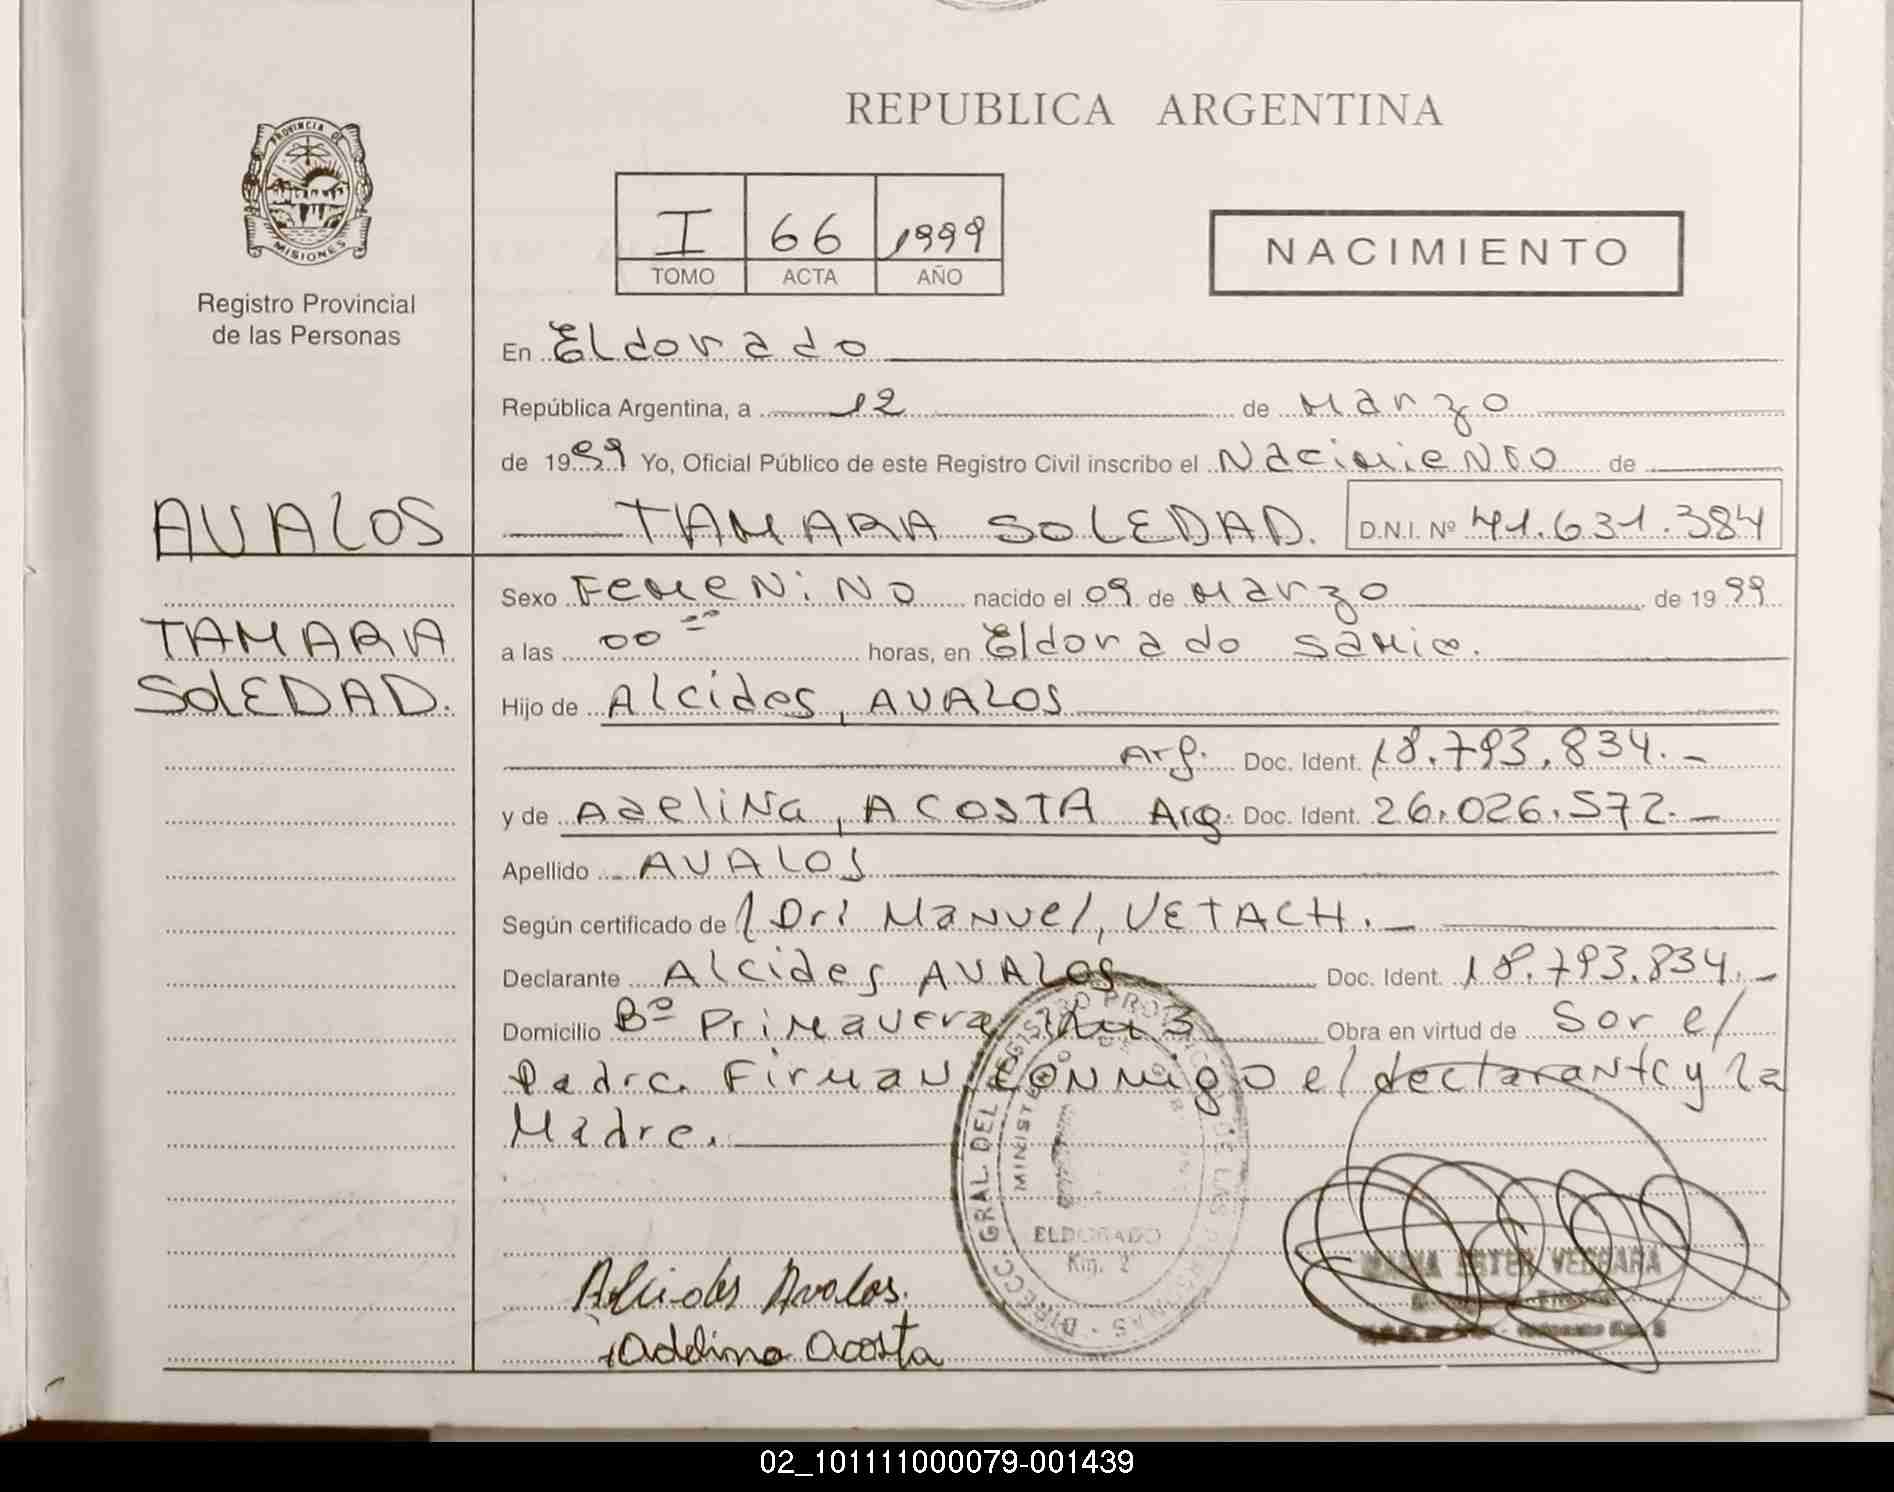 REPUBLICA ARGENTINA
PROVINCIA DE
MISIONES
Registro Provincial
de las Personas
I 66 1999
TOMO ACTA AÑO
NACIMIENTO
En Eldorado
República Argentina, a 12 de Marzo
de 1999 Yo, Oficial Público de este Registro Civil inscribo el Nacimiento de
AVALOS
TAMARA SOLEDAD. D.N.I. Nº 41.631.384
Sexo Femenino nacido el 09 de Marzo de 1999
TAMARA
a las 00 horas, en Eldorado
SOLEDAD.
Hijo de Alcides, AVALOS
Arg. Doc. Ident. 18.793.834.-
y de Adelina, ACOSTA Arg. Doc. Ident. 26.026.572.-
Apellido AVALOS
Según certificado de Manuel, VETACH.
Declarante Alcides AVALOS Doc. Ident. 18.793.834.-
Domicilio Bº Primavera Obra en virtud de Ser el
Padre. Firman Conmigo el declarante y la
Madre.
DIRECC. GRAL. DEL REGISTRO PROVINCIAL DE LAS PERSONAS
ELDORADO
Km. 2
Alcides Avalos.
Adelina Acosta
02_101111000079-001439